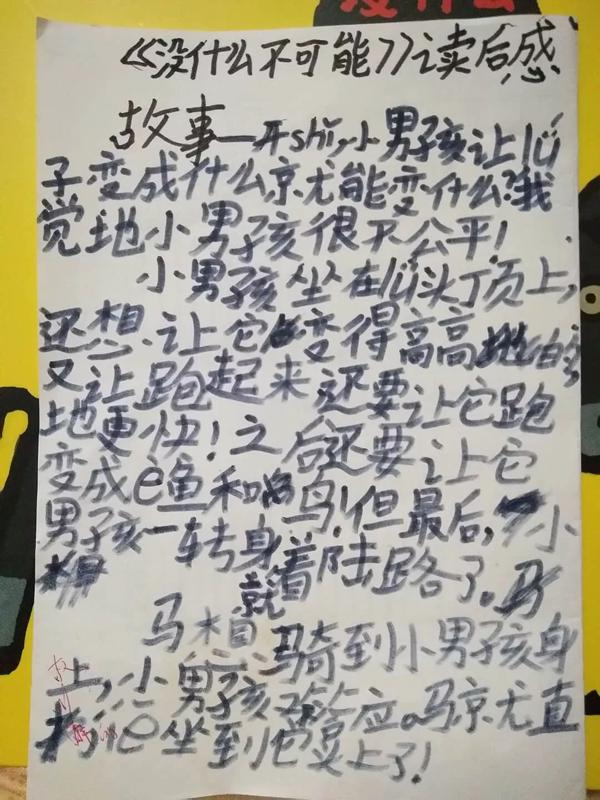 没什么
《没什么不可能》读后感
故事一开shǐ,小男孩让lǘ
子变成什么京尤能变什么?我
觉地小男孩很不公平!
小男孩坐在lǘ头丁页上,
还想让它变得高高的
又让跑起来还要让它跑
地更快!之后还要让它
变成e鱼和鸟!但最后,小
男孩一转身着陆路了。
就
马相骑到小男孩身
上,小男孩应。马京尤直
坐到它上了!